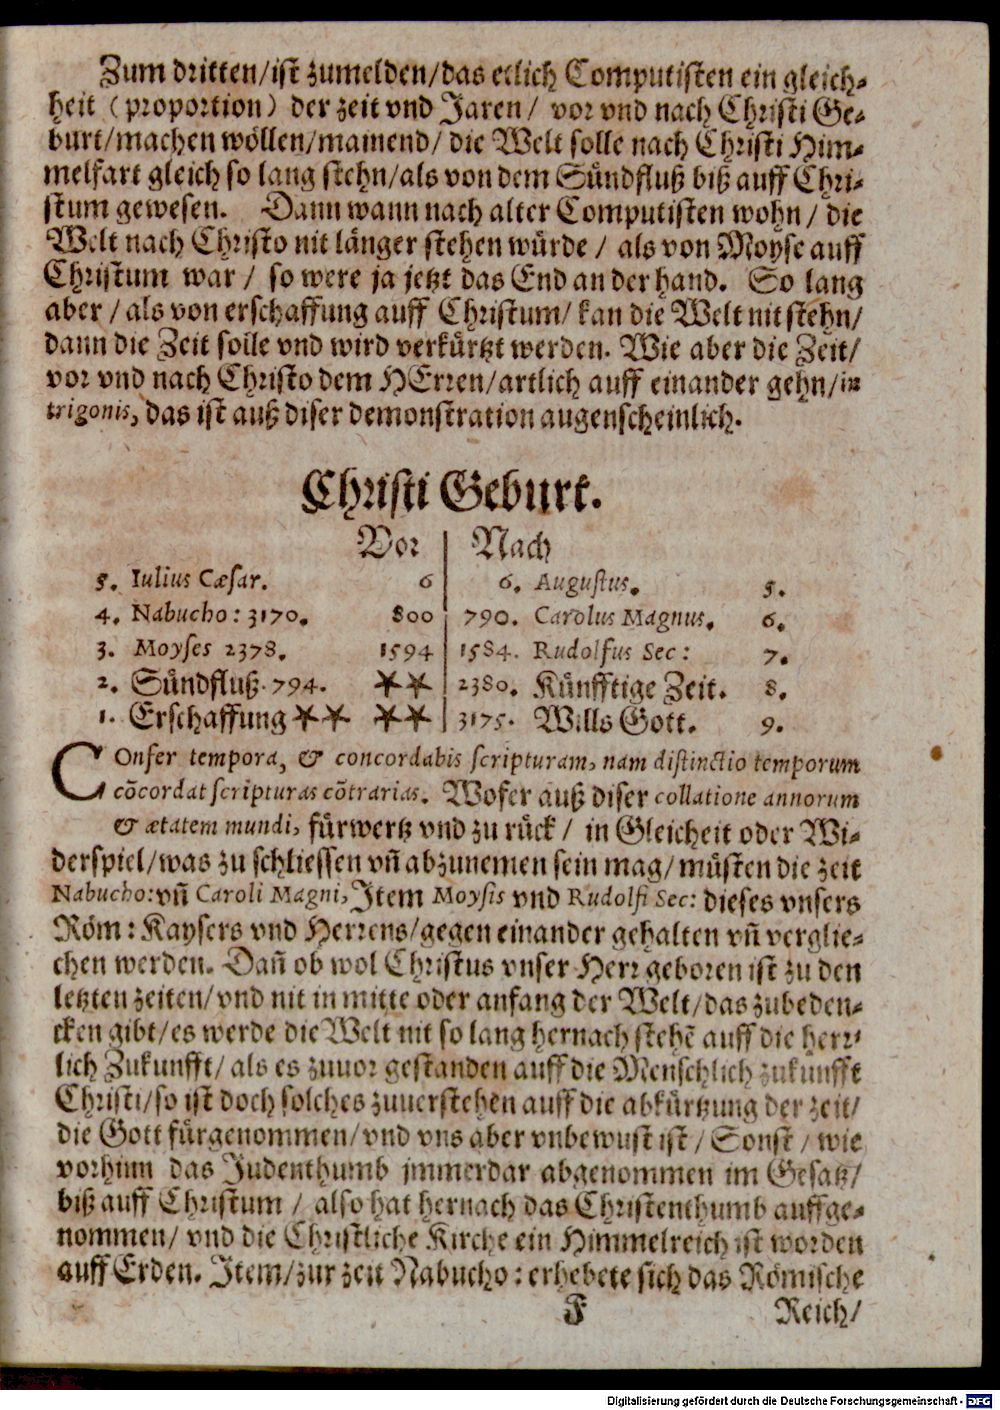 Zum dritten/ist zumelden/das etlich Computisten ein gleich-
heit (proportion) der zeit vnd Jaren/ vor vnd nach Christi Ge-
burt/machen wöllen/mainend/ die Welt solle nach Christi Him-
melfart gleich so lang stehn/als von dem Sündfluß biß auff Chri-
stum gewesen. Dann wann nach alter Computisten wohn/ die
Welt nach Christo nit länger stehen würde/ als von Moyse auff
Christum war/ so were ja jetzt das End an der hand. So lang
aber/ als von erschaffung auff Christum/ kan die Welt nit stehn/
dann die Zeit solle vnd wird verkürtzt werden. Wie aber die Zeit/
vor vnd nach Christo dem HErren/artlich auff einander gehn/in
trigonis, das ist auß diser demonstration augenscheinlich.
Christi Geburt.
Vor | Nach
5. Iulius Cæsar. 6 | 6. Augustus. 5.
4. Nabucho: 3170. 800 | 790. Carolus Magnus. 6.
3. Moyses 2378. 1594 | 1584. Rudolfus Sec: 7.
2. Sündfluß. 794. ** | 2380. Künfftige Zeit. 8.
1. Erschaffung ** ** | 3175. Wills Gott. 9.
COnfer tempora, & concordabis scripturam, nam distinctio temporum
cōcordat scripturas cōtrarias. Wofer auß diser collatione annorum
& ætatem mundi, fürwertz vnd zu rück/ in Gleicheit oder Wi-
derspiel/was zu schliessen vn̄ abzunemen sein mag/ müsten die zeit
Nabucho: vn̄ Caroli Magni, Item Moysis vnd Rudolfi Sec: dieses vnsers
Röm: Kaysers vnd Herrens/gegen einander gehalten vn̄ verglie-
chen werden. Dan̄ ob wol Christus vnser Herr geboren ist zu den
letzten zeiten/vnd nit in mitte oder anfang der Welt/das zubeden-
cken gibt/es werde die Welt nit so lang hernach stehē auff die herr-
lich Zukunfft/ als es zuuor gestanden auff die Menschlich zukunfft
Christi/so ist doch solches zuuerstehen auff die abkürtzung der zeit/
die Gott fürgenommen/vnd vns aber vnbewust ist/ Sonst/ wie
vorhinn das Judenthumb jmmerdar abgenommen im Gesatz/
biß auff Christum/ also hat hernach das Christenthumb auffge-
nommen/ vnd die Christliche Kirche ein Himmelreich ist worden
auff Erden. Item/zur zeit Nabucho: erhebete sich das Römische
F Reich/
Digitalisierung gefördert durch die Deutsche Forschungsgemeinschaft - DFG